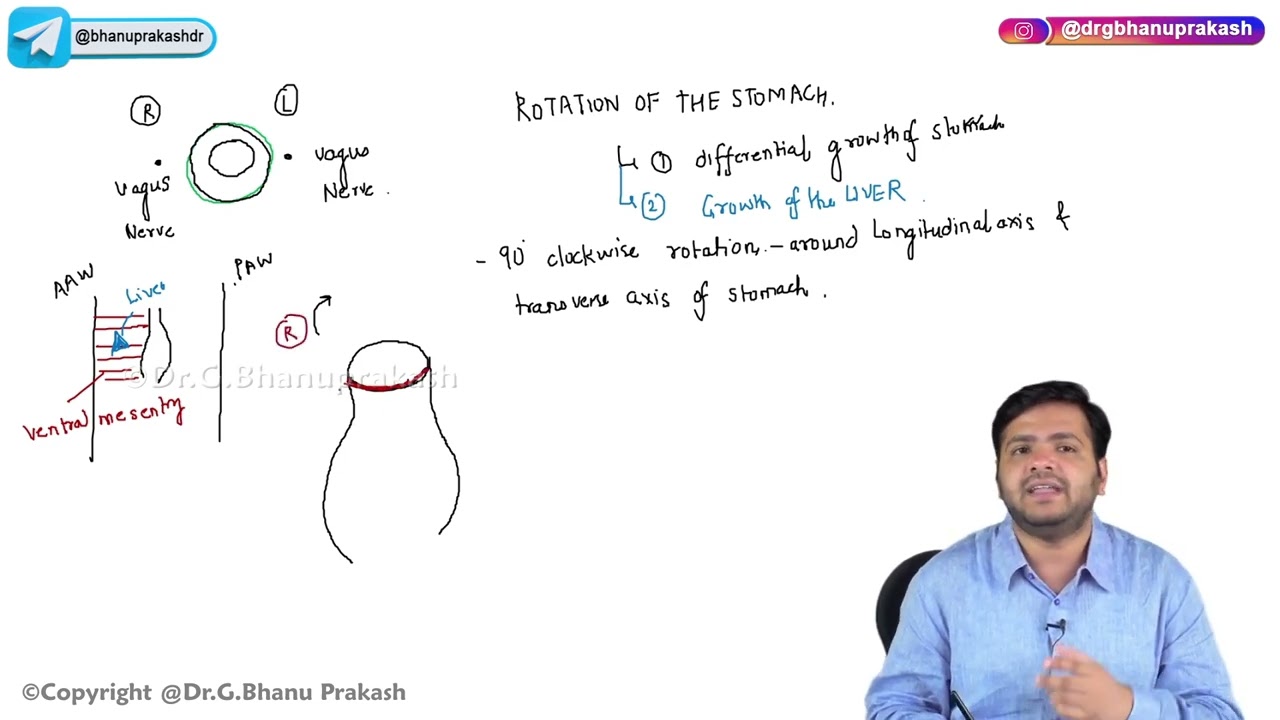 @bhanuprakashdr
@drgbhanuprakash
R
L
vagus
Nerve
vagus
Nerve.
ROTATION OF THE STOMACH.
① differential growth of stomach
② Growth of the LIVER.
- 90° clockwise rotation - around longitudinal axis &
transverse axis of stomach.
AAW
PAW
Liver
ventral mesentry
R
©Dr.G.Bhanuprakash
©Copyright @Dr.G.Bhanu Prakash